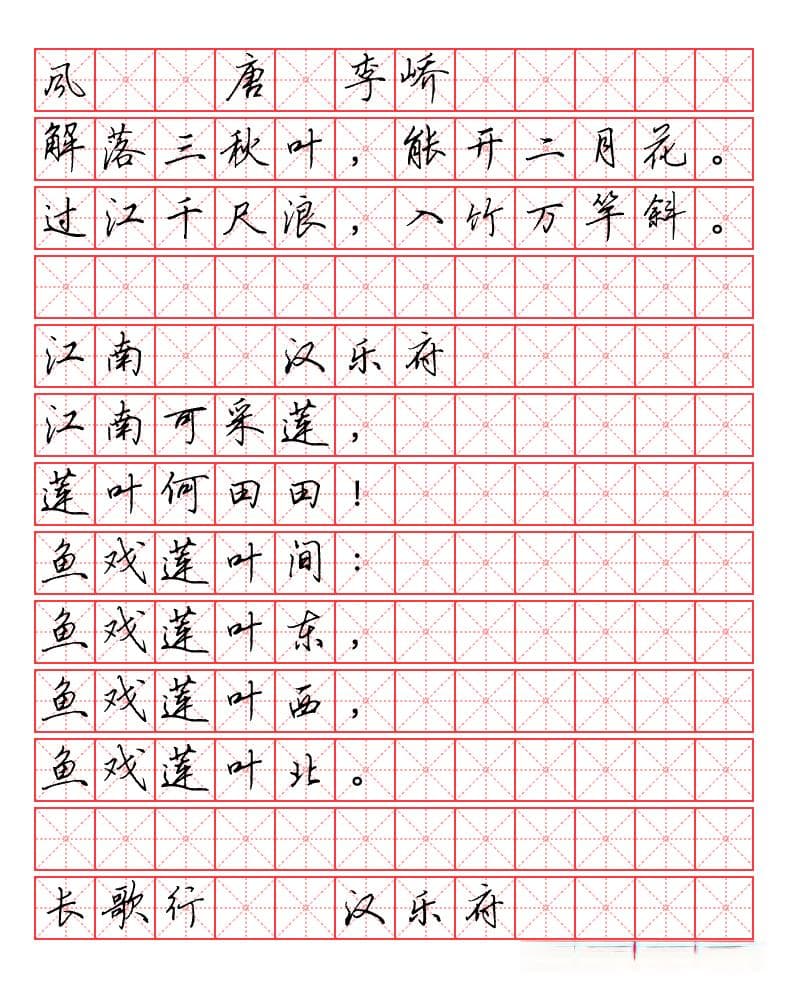 风 唐 李峤
解落三秋叶，能开二月花。
过江千尺浪，入竹万竿斜。
江南 汉乐府
江南可采莲，
莲叶何田田！
鱼戏莲叶间：
鱼戏莲叶东，
鱼戏莲叶西，
鱼戏莲叶北。
长歌行 汉乐府